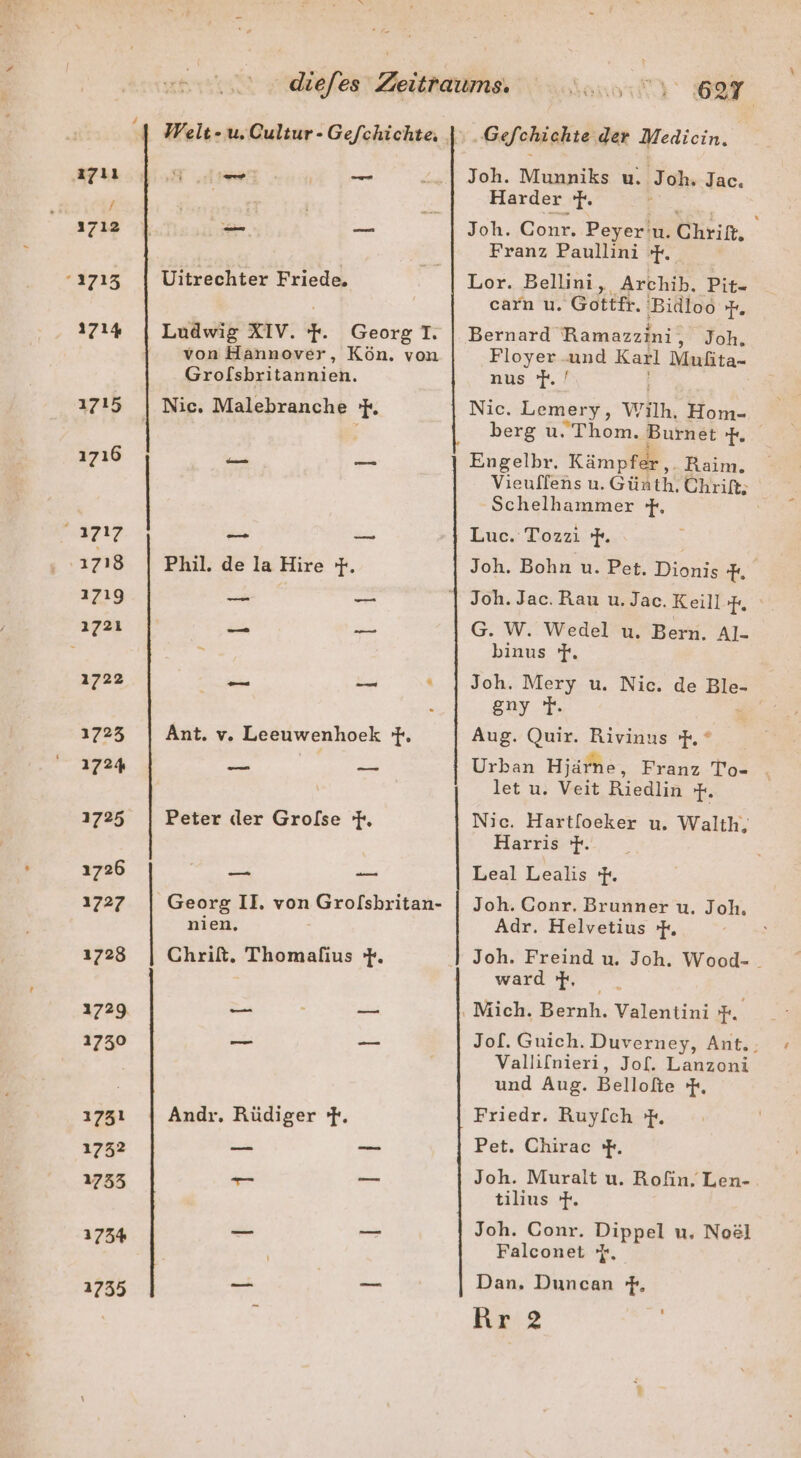 dieſes Zeitraums. 627
Welt- u. Cultur-Geſchichte. Geſchichte der Medicin.
1711 — — Joh. Munniks u. Joh. Jac.
Harder †.
1712 — — Joh. Conr. Peyer u. Chriſt.
Franz Paullini †.
1713 Uitrechter Friede. Lor. Bellini, Archib. Pit-
carn u. Gottfr. Bidloo †.
1714 Ludwig XIV. †. Georg I. Bernard Ramazzini, Joh.
von Hannover, Kön. von Floyer und Karl Muſita-
Groſsbritannien. nus †.
1715 Nic. Malebranche †. Nic. Lemery, Wilh. Hom-
berg u. Thom. Burnet †.
1716 — — Engelbr. Kämpfer, Raim.
Vieuſſens u. Günth. Chriſt.
Schelhammer †.
1717 — — Luc. Tozzi †.
1718 Phil. de la Hire †. Joh. Bohn u. Pet. Dionis †.
1719 — — Joh. Jac. Rau u. Jac. Keill †.
1721 — — G. W. Wedel u. Bern. Al-
binus †.
1722 — — Joh. Mery u. Nic. de Ble-
gny †.
1723 Ant. v. Leeuwenhoek †. Aug. Quir. Rivinus †.
1724 — — Urban Hjärne, Franz To-
let u. Veit Riedlin †.
1725 Peter der Groſse †. Nic. Hartſoeker u. Walth.
Harris †.
1726 — — Leal Lealis †.
1727 Georg II. von Groſsbritan- Joh. Conr. Brunner u. Joh.
nien. Adr. Helvetius †.
1728 Chriſt. Thomaſius †. Joh. Freind u. Joh. Wood-
ward †.
1729 — — Mich. Bernh. Valentini †.
1730 — — Joſ. Guich. Duverney, Ant.
Valliſnieri, Joſ. Lanzoni
und Aug. Belloſte †.
1731 Andr. Rüdiger †. Friedr. Ruyſch †.
1732 — — Pet. Chirac †.
1733 — — Joh. Muralt u. Roſin. Len-
tilius †.
1734 — — Joh. Conr. Dippel u. Noël
Falconet †.
1735 — — Dan. Duncan †.
Rr 2